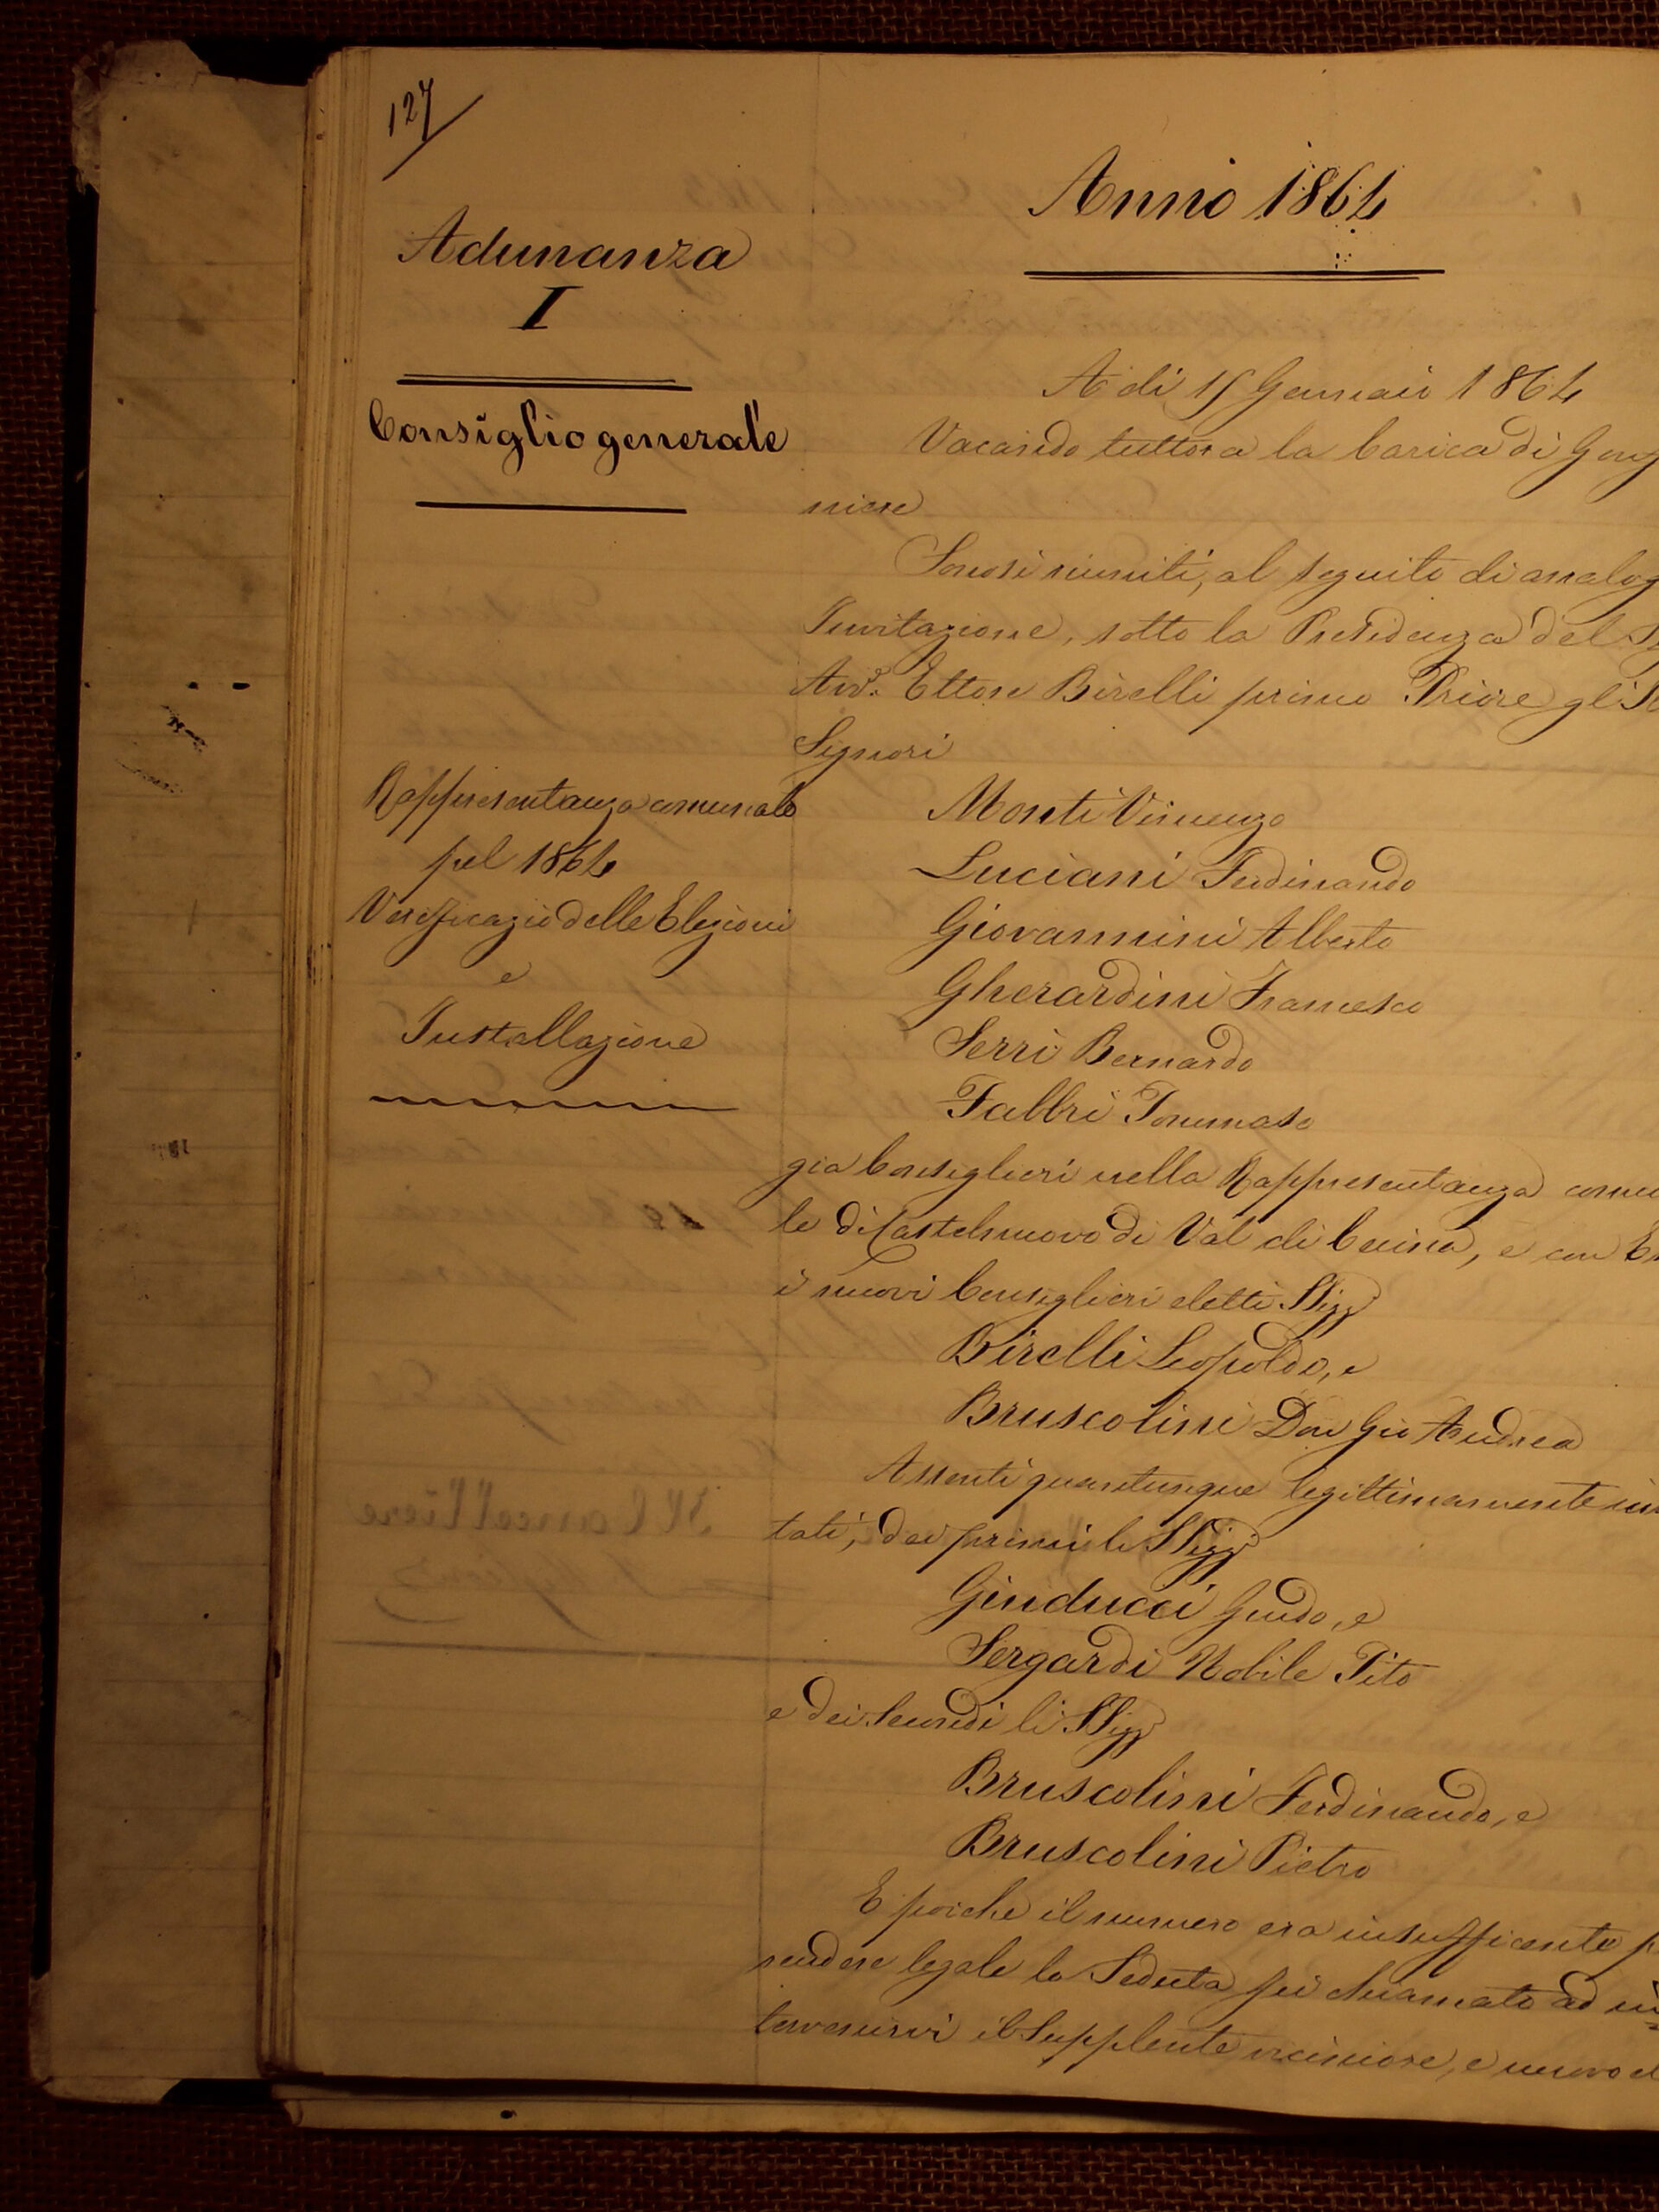 127
Anno 1864
Adunanza
I
Consiglio generale
A di 15 Gennaio 1864
Vacando tuttora la Carica di Gonf
niere
Sonosi riuniti, al seguito di analog
Invitazione, sotto la Presidenza del S
Avv. Ettore Birelli primo Priore gl'I
Signori
Rappresentanza comunale
pel 1864
Verificazio delle Elezioni
e
Installazione
Monti Vincenzo
Luciani Ferdinando
Giovannini Alberto
Gherardini Francesco
Serri Bernardo
Fabbri Tommaso
gia Consiglieri nella Rappresentanza comu
le di Castelnuovo di Val di Cecina, e con E
i nuovi Consiglieri eletti SSigg
Birelli Leopoldo, e
Bruscolini Don Gio Andrea
Assenti quantunque legittimamente in
tati, dei primi li SSigg
Ginducci Guido, e
Sergardi Nobile Tito
e dei secondi li SSigg
Bruscolini Ferdinando, e
Bruscolini Pietro
E poiche il numero era insufficente p
rendere legale la Seduta fu chiamato ad in
tervenirvi il Supplente viciniore, e nuovo el